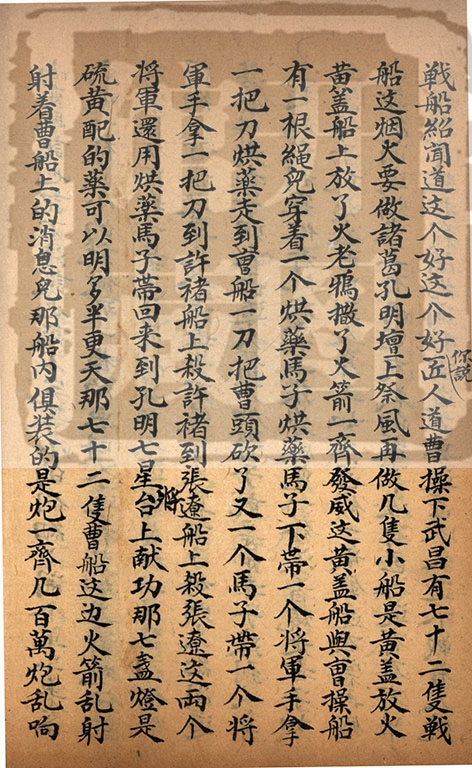 戰船紹闻道这个好这个好你說匠人道曹操下武昌有七十二隻戰
船这烟火要做諸葛孔明壇上祭風再做几隻小船是黄盖放火
黄盖船上放了火老鴉撒了火箭一齊發威这黄盖船與曹操船
有一根繩兒穿着一个烘藥馬子烘藥馬子下帶一个将軍手拿
一把刀烘藥走到曹船一刀把曹頭砍了又一个馬子帶一个将
軍手拿一把刀到許褚船上殺許褚到張遼船上殺張遼这兩个
将軍還用烘藥馬子帶回来到孔明七星台上献功那七盏燈是
硫黄配的藥可以明多半更天那七十二隻曹船这边火箭乱射
射着曹船上的消息兒那船内俱装的是炮一齊几百萬炮乱响